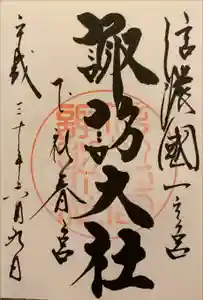 信濃國一之宮
諏訪大社
下社春宮
平成三十年 月九日